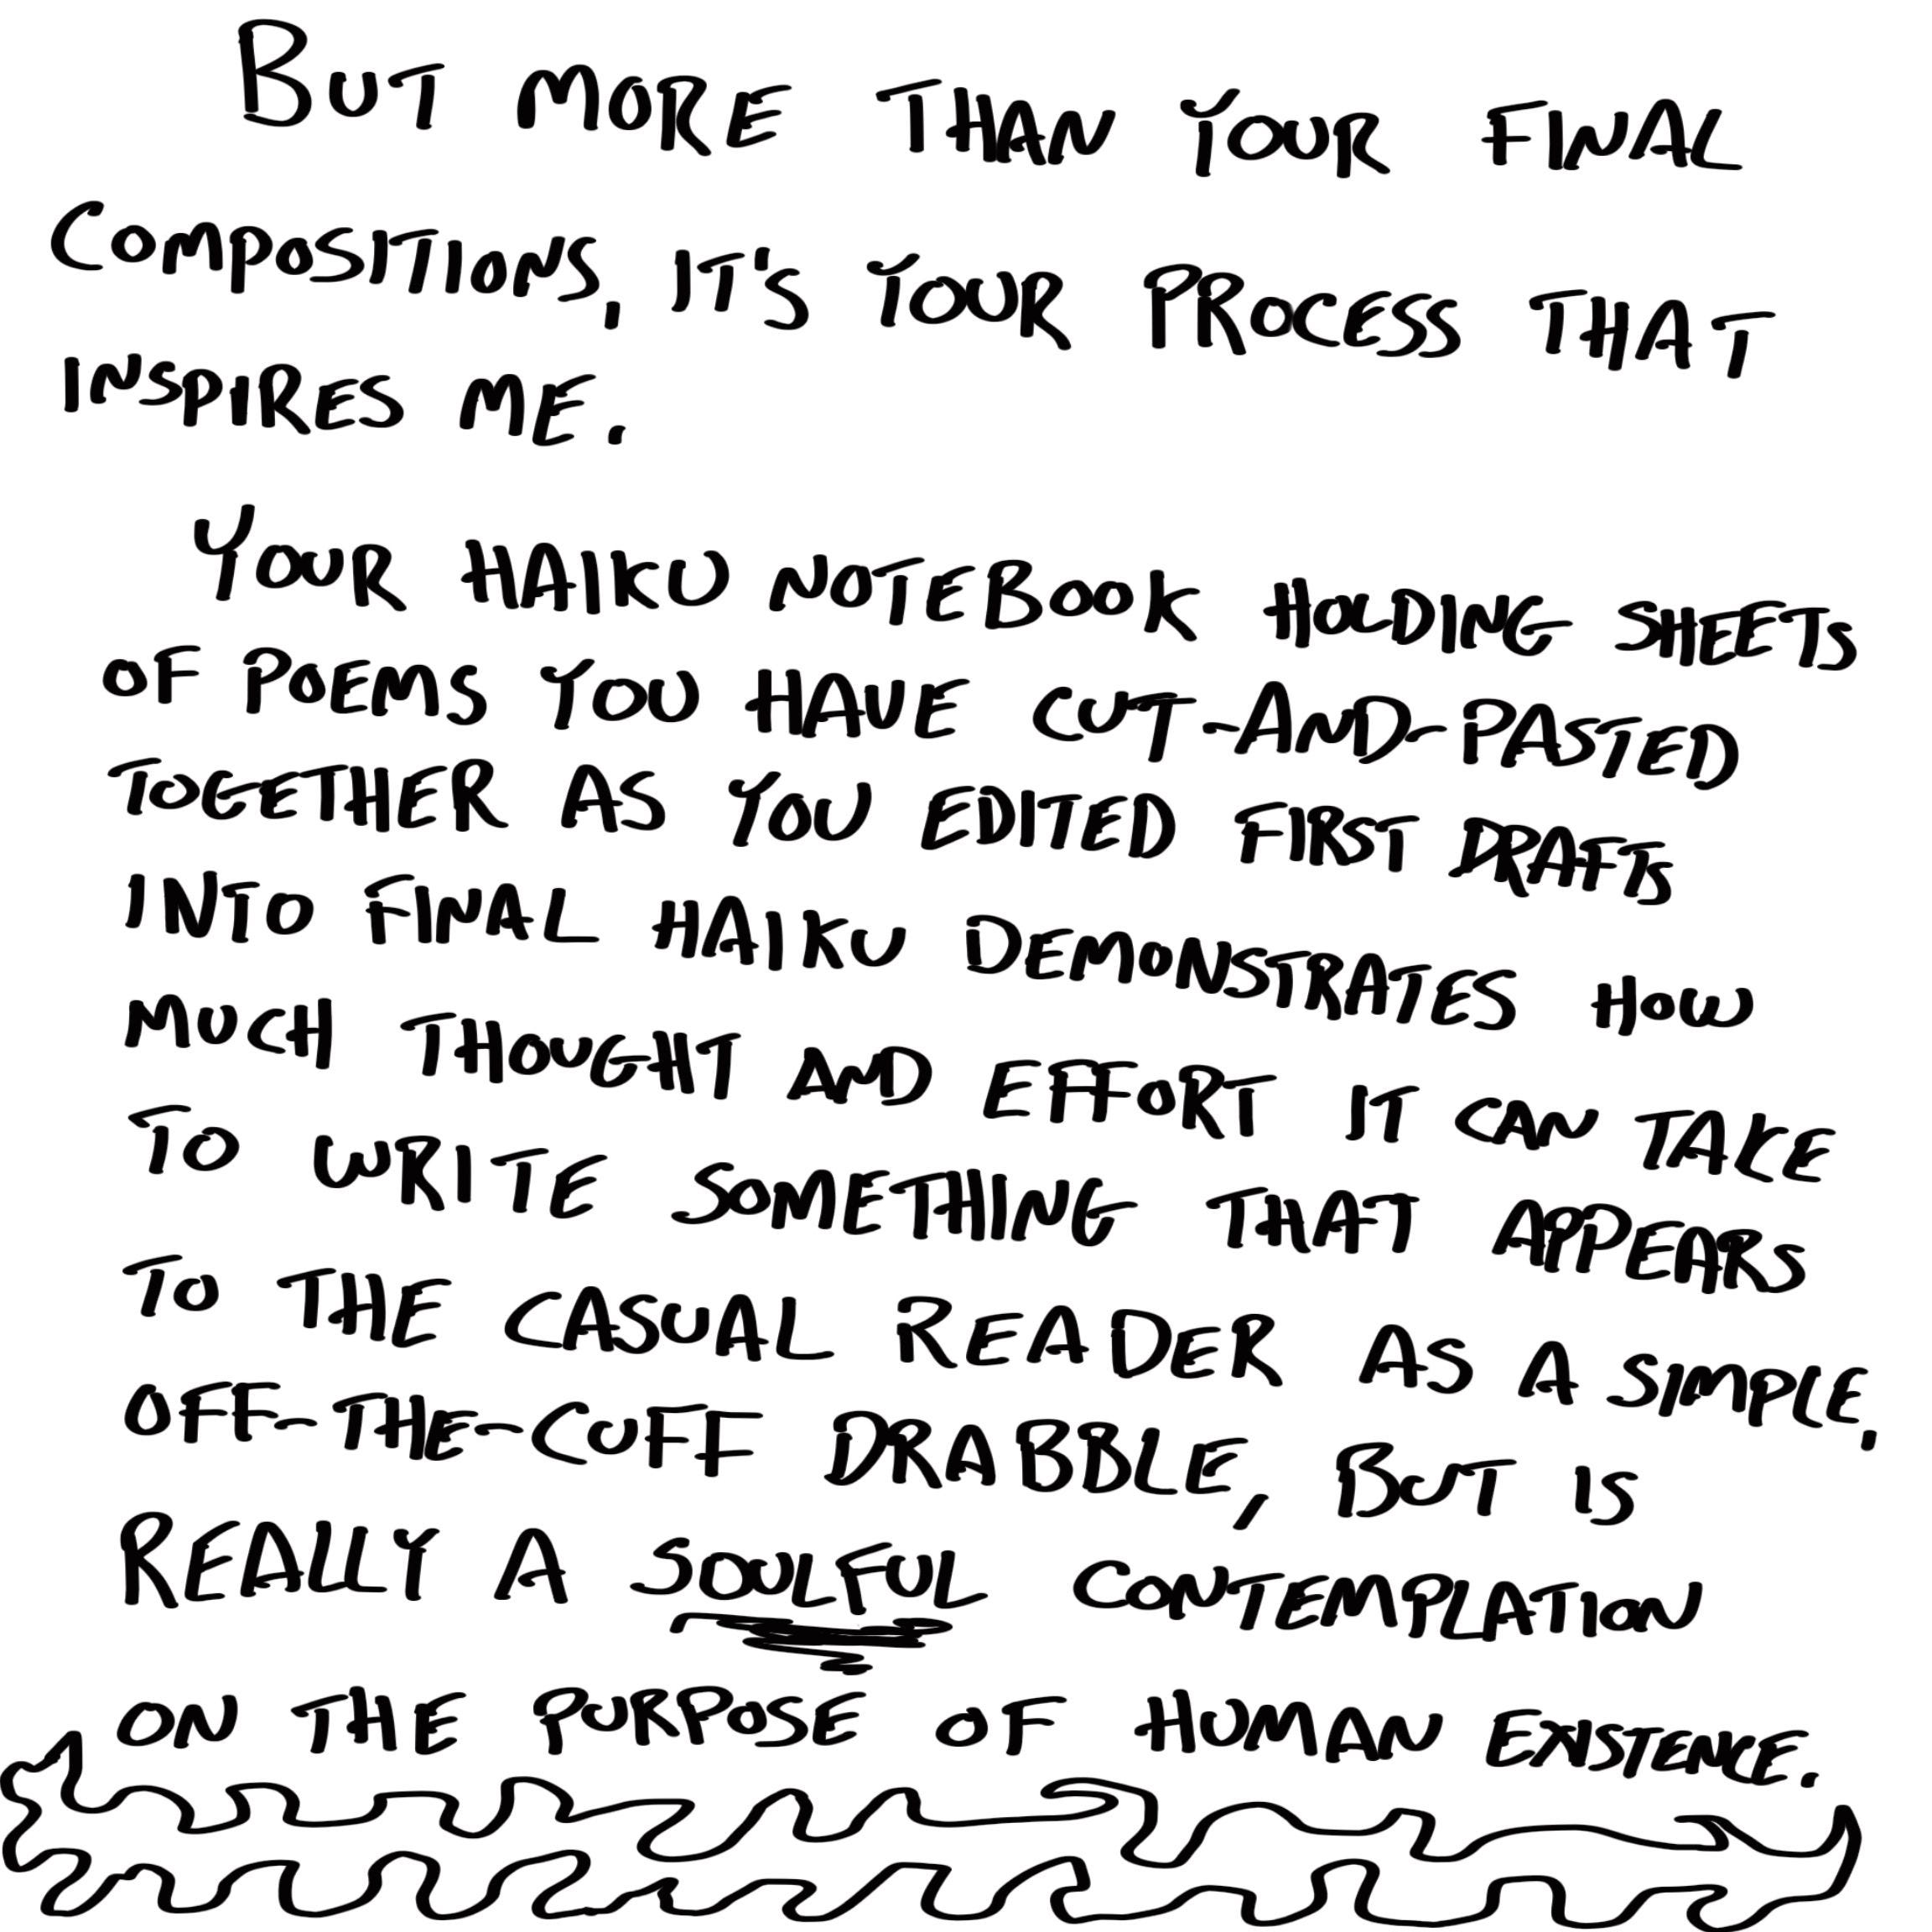 BUT MORE THAN YOUR FINAL
COMPOSITIONS, IT'S YOUR PROCESS THAT
INSPIRES ME.
YOUR HAIKU NOTEBOOK HOLDING SHEETS
OF POEMS YOU HAVE CUT-AND-PASTED
TOGETHER AS YOU EDITED FIRST DRAFTS
INTO FINAL HAIKU DEMONSTRATES HOW
MUCH THOUGHT AND EFFORT IT CAN TAKE
TO WRITE SOMETHING THAT APPEARS
TO THE CASUAL READER AS A SIMPLE,
OFF-THE-CUFF DRABBLE, BUT IS
REALLY A SOULFUL CONTEMPLATION
ON THE PURPOSE OF HUMAN EXISTENCE.